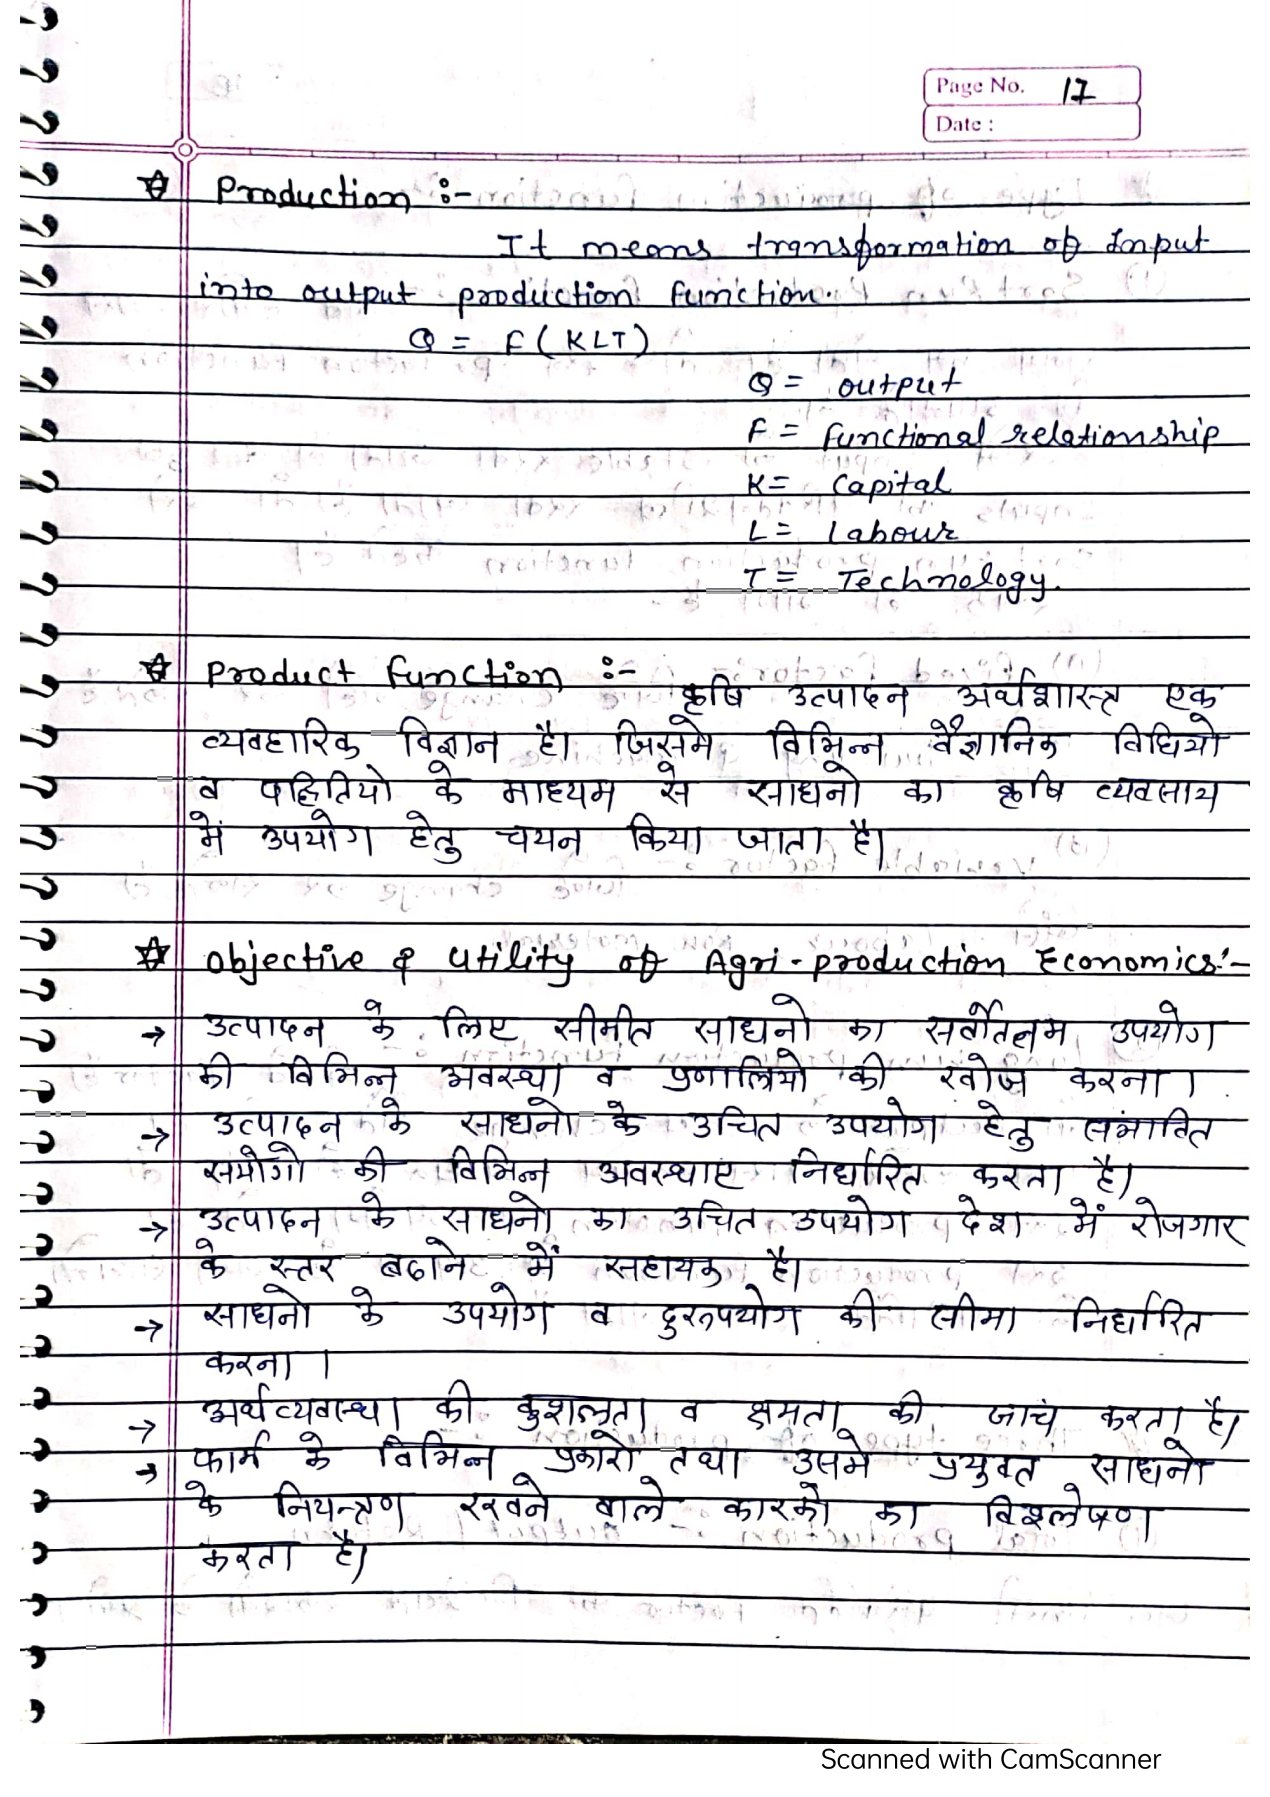 Page No. 17
Date :
☆ Production :-
It means transformation of Input
into output production function.
Q = F ( KLT )
Q = output
F = Functional relationship
K = Capital
L = Labour
T = Technology.
☆ Product function :-
कृषि उत्पादन अर्थशास्त्र एक
व्यवहारिक विज्ञान है। जिसमे विभिन्न वैज्ञानिक विधियो
व पद्दितियो के माध्यम से साधनो का कृषि व्यवसाय
में उपयोग हेतु चयन किया जाता है।
☆ Objective & Utility of Agri-production Economics:-
→ उत्पादन के लिए सीमीत साधनो का सर्वोतम उपयोग
की विभिन्न अवस्था व प्रणालियो की खोज करना।
→ उत्पादन के साधनो के उचित उपयोग हेतु संभावित
सयोगो की विभिन्न अवस्थाए निर्धारित करता है।
→ उत्पादन के साधनो का उचित उपयोग देश में रोजगार
के स्तर बढाने में सहायक है।
→ साधनो के उपयोग व दुरूपयोग की सीमा निर्धारित
करना ।
→ अर्थव्यवस्था की कुशलता व क्षमता की जाचं करता है।
→ फार्म के विभिन्न प्रकारो तथा उसमे प्रयुक्त साधनो
के नियन्त्रण रखने वाले कारको का विश्लेषण
करता है।
Scanned with CamScanner